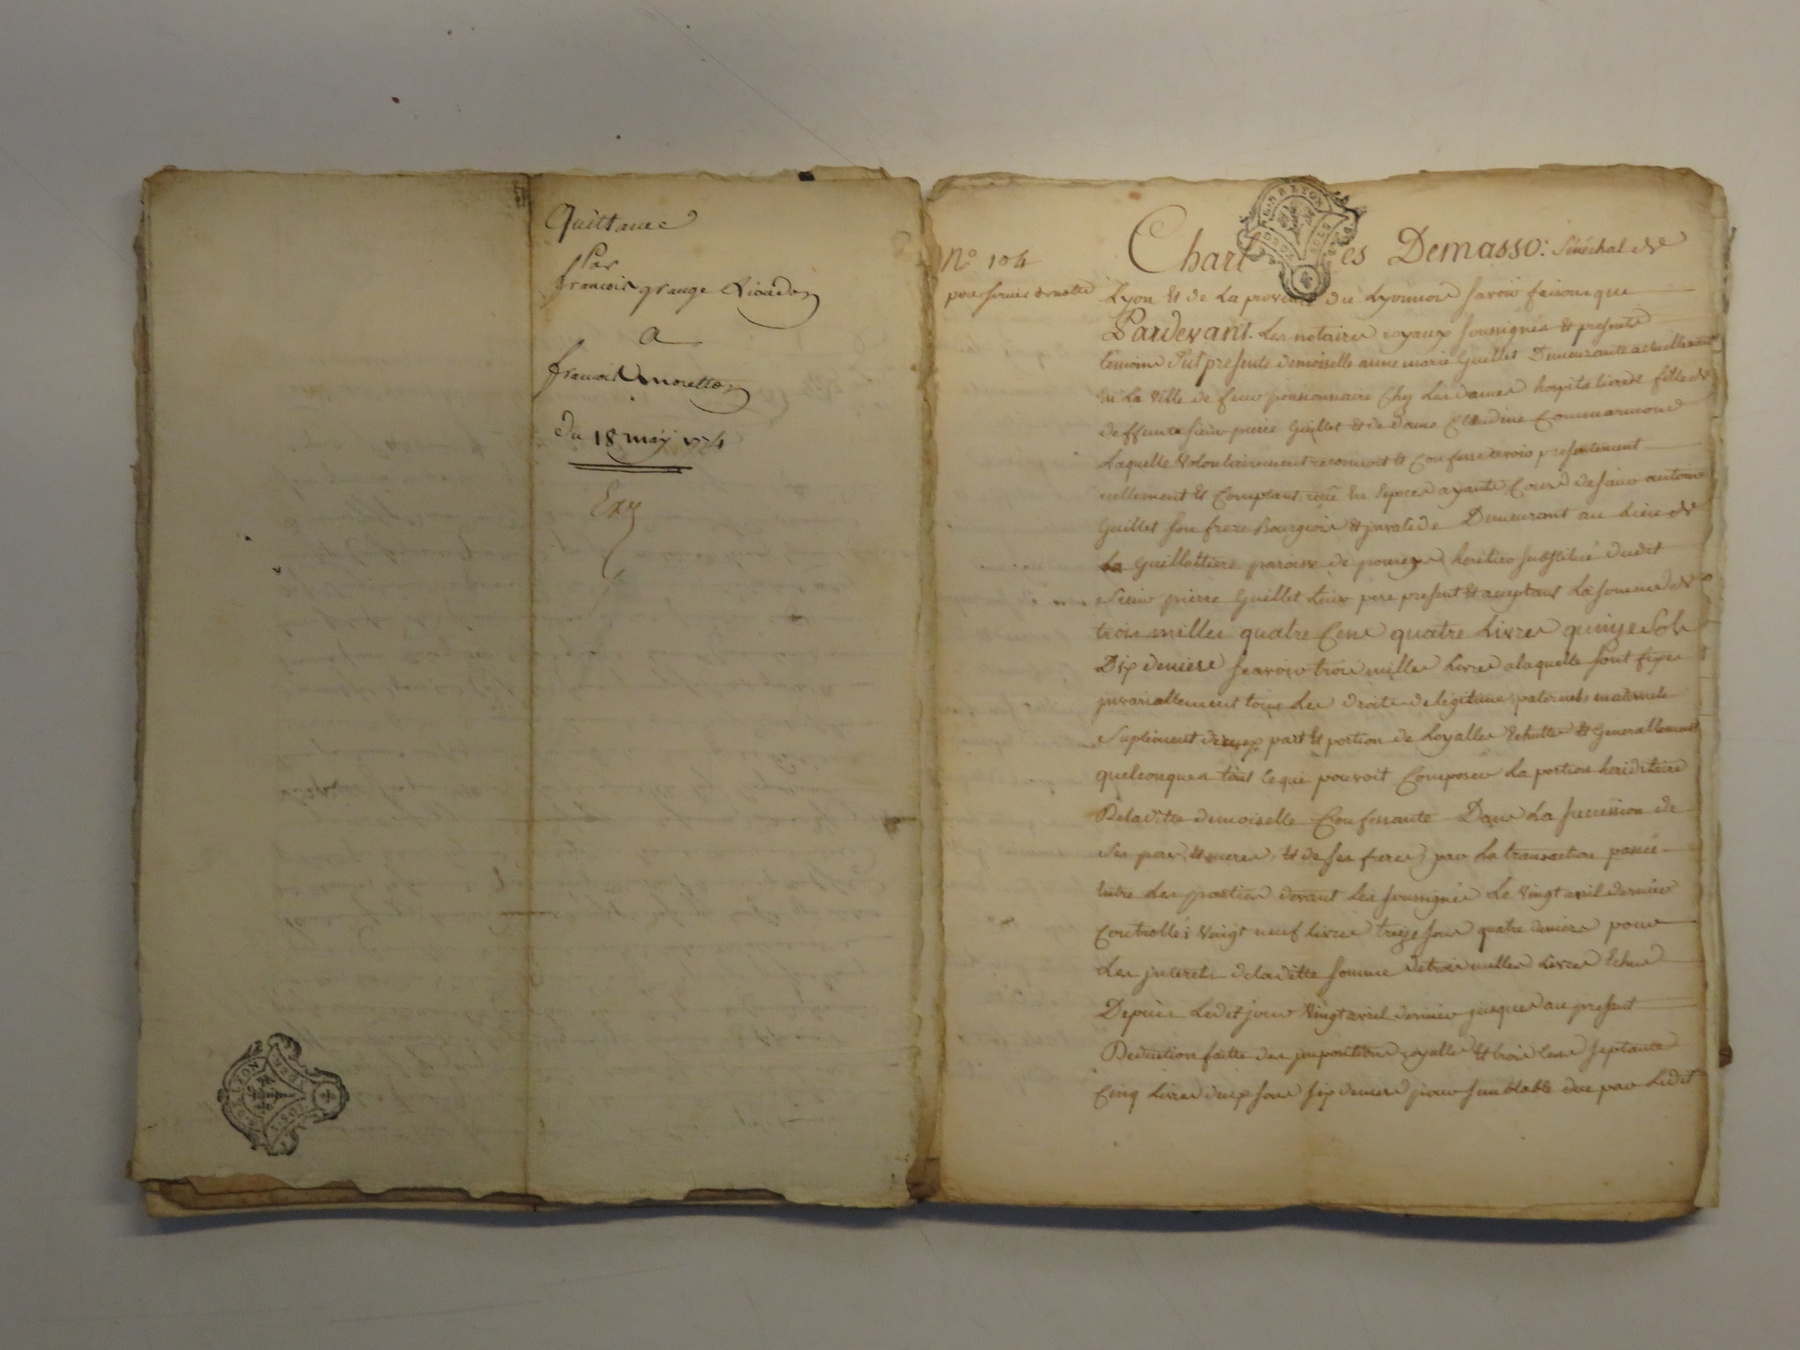 Quittance
Par
francois grange Rioudon
A
francois moretton
du 18 may 1774
Exp
N° 104
pour servir de notte
Charles Demasso: Sénéchal de
Lyon et de La province du Lyonnois savoir faisons que
Pardevant Les notaires royaux soussignés et presents
temoins fut presente demoiselle anne marie Guillet Demeurante actuellement
En La Ville de pensionnaire Chez Les dames hospitalieres fille de
deffunts sieur pierre Guillet et de dame Claudine Commarmond
Laquelle volontairement reconnoit et Confesse avoir presentement
reellement et Comptant reçu En Especes ayants Cours de sieur antoine
Guillet son frere Bourgeois Demeurant au Lieu de
La Guillottiere paroisse de heritier substitué dudit
Sieur pierre Guillet Leur pere present et acceptant La somme de
trois milles quatre Cens quatre Livres quinze Sols
Dix deniers scavoir trois milles Livres a laquelle sont fixés
invariablement tous Les droits de legitime paternels maternels
Suplement part et portion de Loyalles Echuttes et Generallement
quelconques tout ce qui pouvoit Composer La portion hereditaire
De laditte demoiselle Confessante Dans La succession de
Ses pere et mere, et de ses freres par La transaction passée
Entre Les parties devant Les soussignés Le Vingt avril dernier
Controllés Vingt neuf livres treize sous quatre deniers pour
Les interets de laditte somme de trois milles Livres Echus
Depuis Ledit jour Vingt avril dernier jusques au present
Deduction faitte des impositions royalles et trois Cens septante
Cinq Livres deux sous six deniers pour semblable due par Ledit